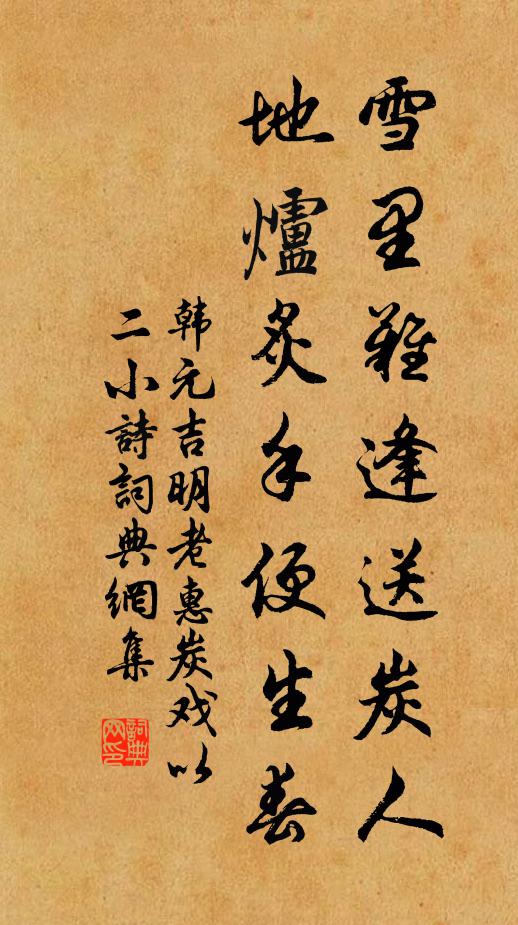 雪里難逢送炭人
地爐炙手便生春
韩元吉明老惠炭戏以
二小詩詞典網集